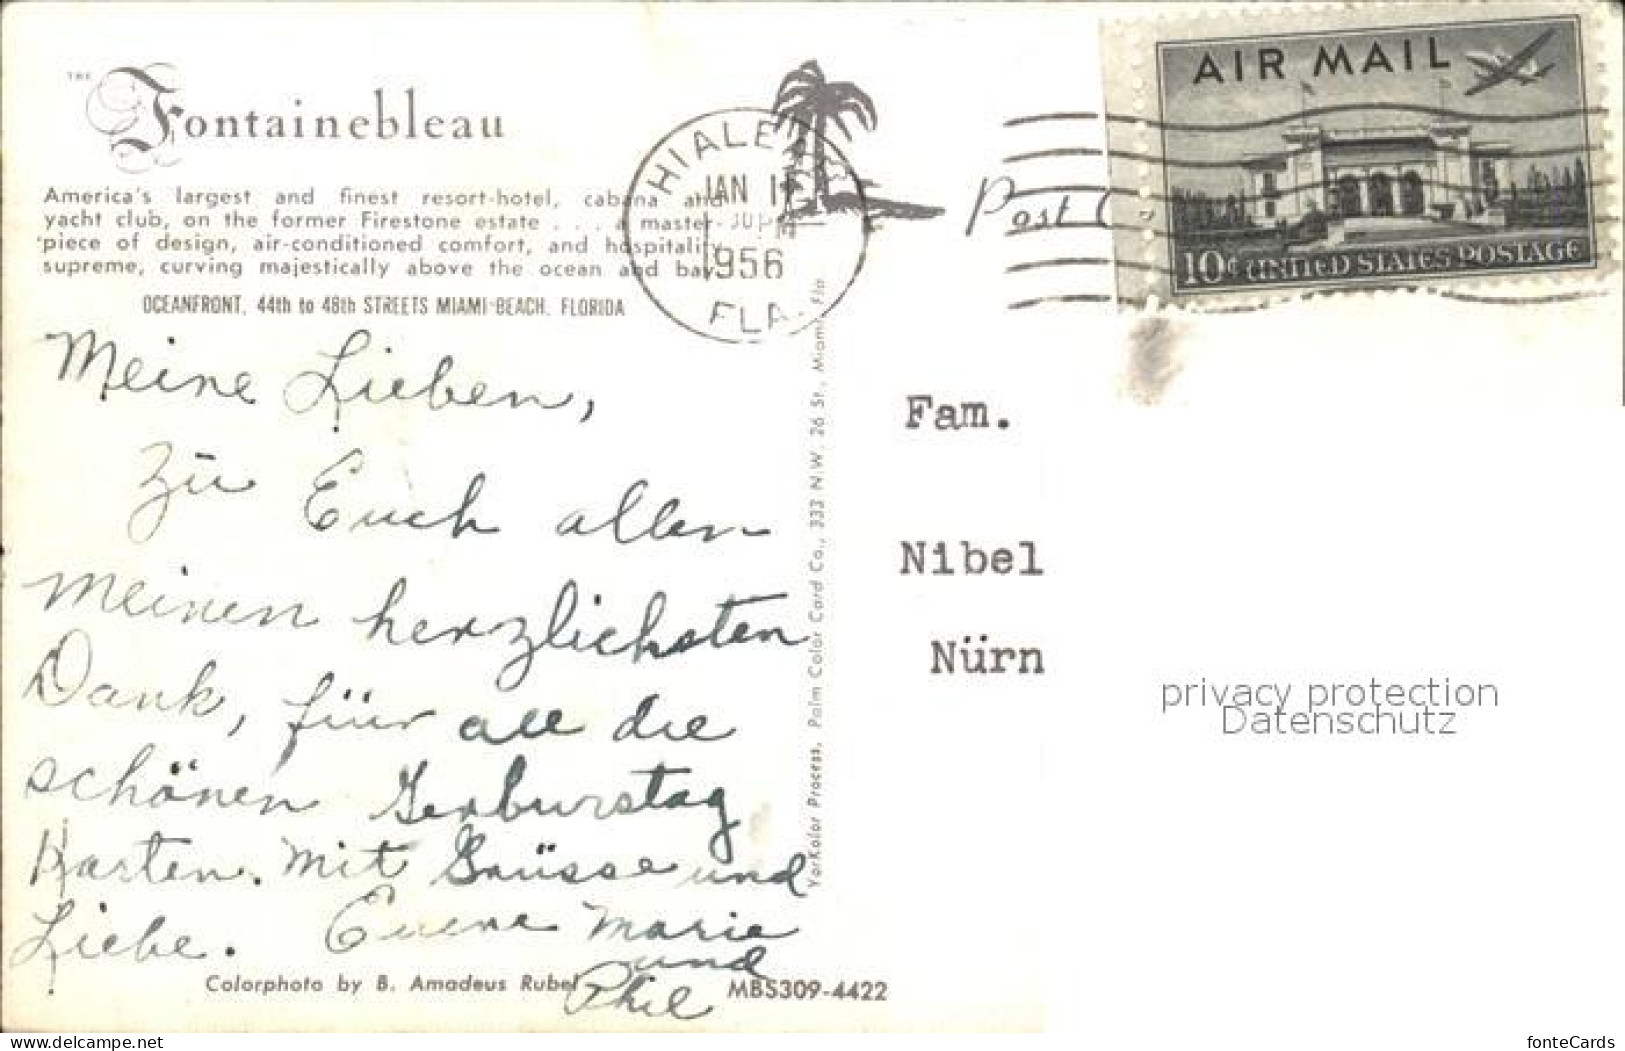 THE
Fontainebleau
America's largest and finest resort-hotel, cabana and
yacht club, on the former Firestone estate . . . a master-
piece of design, air-conditioned comfort, and hospitality
supreme, curving majestically above the ocean and bay.
OCEANFRONT, 44th to 48th STREETS MIAMI BEACH, FLORIDA
HIALEAH
JAN 1
1956
FLA.
Post C
AIR MAIL
10¢ UNITED STATES POSTAGE
Meine Lieben,
Zu Euch allen
meinen herzlichsten
Dank, für all die
schönen Geburstag
Karten. Mit Grüsse und
Liebe. Euere Marie
und
Phil
Colorphoto by B. Amadeus Rubel
MBS309-4422
YorKolor Process, Palm Color Card Co., 333 N.W. 26 St., Miami, Fla
Fam.
Nibel
Nürn
privacy protection
Datenschutz
www.delcampe.net
fonteCards